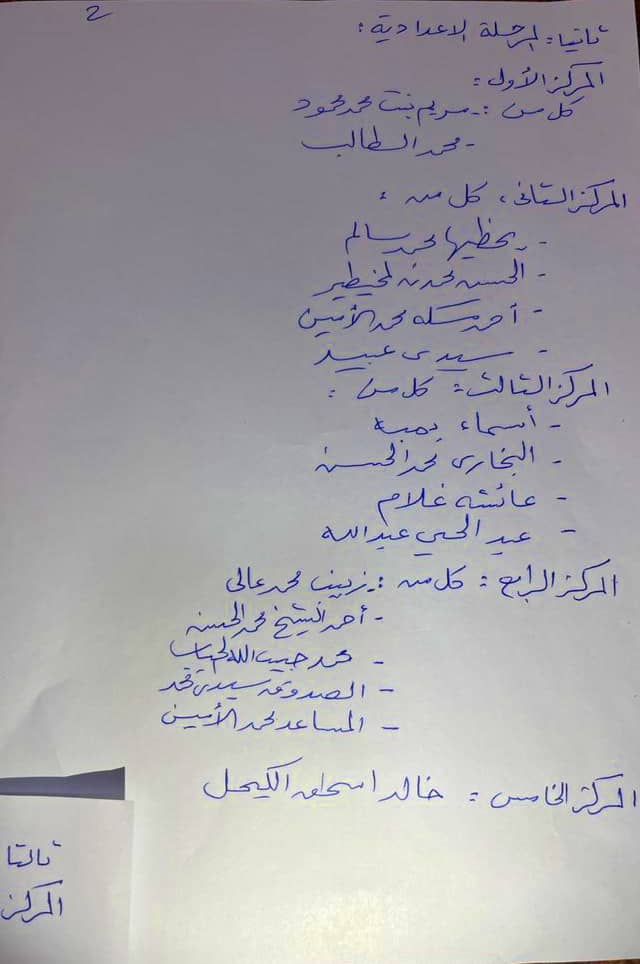 2
ثانيا: المرحلة الاعدادية:
المركز الأول:
كل من: - مريم بنت محمد محمود
- محمد الطالب
المركز الثاني، كل من:
- يحظيها محمد سالم
- الحسن محمدن لمخيطير
- أحمد مسكه محمد الأمين
- سيدي عبيد
المركز الثالث: كل من:
- أسماء يمبه
- البخاري محمد الحسن
- عائشه غلام
- عبد الحي عبد الله
المركز الرابع: كل من: - زينب محمد عالي
- أحمد الشيخ محمد الحسن
- محمد حبيب الله
- الصدوق سيدي محمد
- المساعد محمد الأمين
المركز الخامس: خالد اسحاق الكيحل
ثالثا
المركز